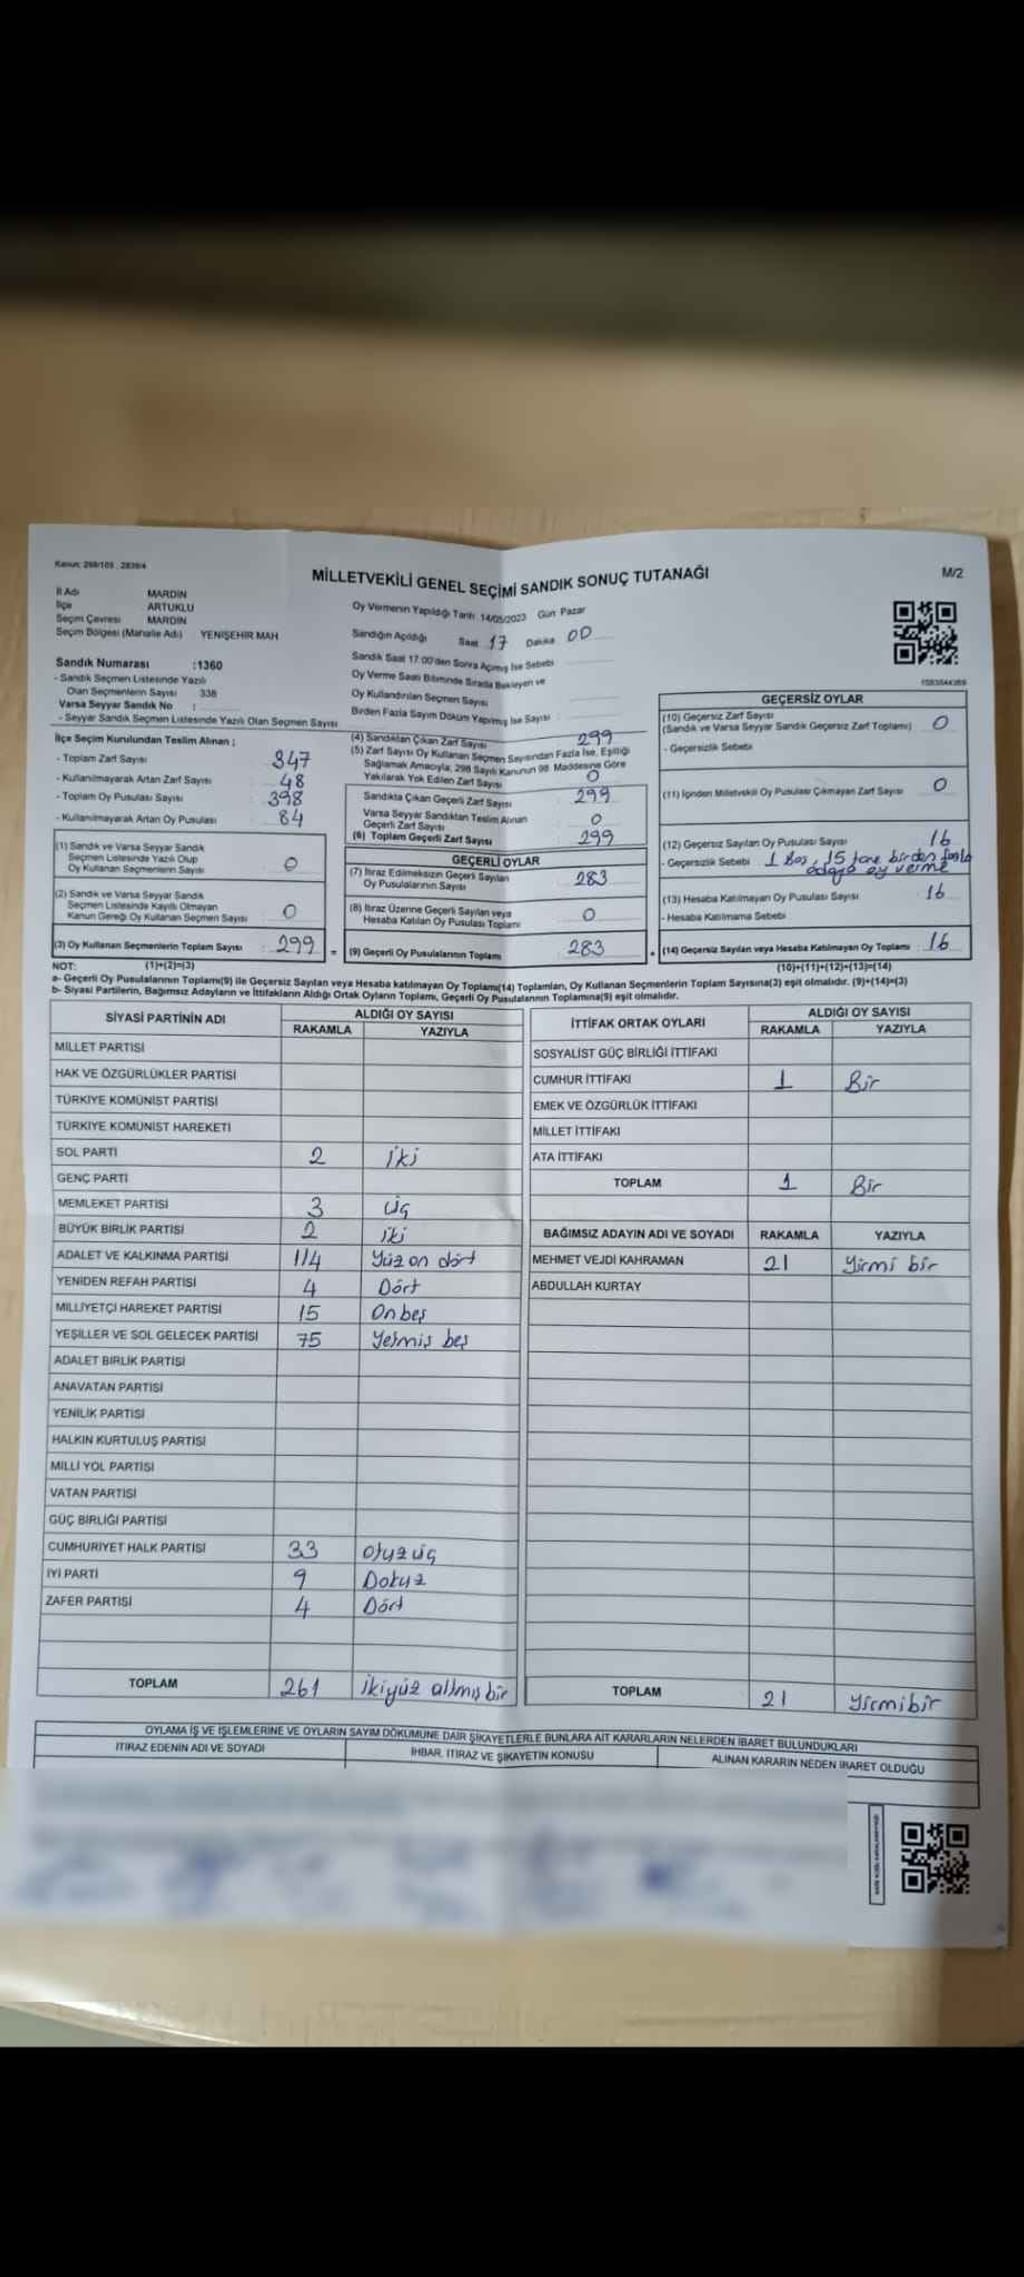 Kanun: 298/105 , 2839/4
MİLLETVEKİLİ GENEL SEÇİMİ SANDIK SONUÇ TUTANAĞI
M/2
İl Adı MARDİN
İlçe ARTUKLU
Seçim Çevresi MARDİN
Seçim Bölgesi (Mahalle Adı) YENİŞEHİR MAH
Sandık Numarası :1360
- Sandık Seçmen Listesinde Yazılı
Olan Seçmenlerin Sayısı 338
Varsa Seyyar Sandık No :
- Seyyar Sandık Seçmen Listesinde Yazılı Olan Seçmen Sayısı
Oy Vermenin Yapıldığı Tarih 14/05/2023 Gün Pazar
Sandığın Açıldığı Saat 17 Dakika 00
Sandık Saat 17:00'den Sonra Açılmış İse Sebebi
Oy Verme Saati Bitiminde Sırada Bekleyen ve
Oy Kullandırılan Seçmen Sayısı
Birden Fazla Sayım Döküm Yapılmış İse Sayısı
İlçe Seçim Kurulundan Teslim Alınan ;
- Toplam Zarf Sayısı 347
- Kullanılmayarak Artan Zarf Sayısı 48
- Toplam Oy Pusulası Sayısı 398
- Kullanılmayarak Artan Oy Pusulası 84
(1) Sandık ve Varsa Seyyar Sandık
Seçmen Listesinde Yazılı Olup
Oy Kullanan Seçmenlerin Sayısı 0
(2) Sandık ve Varsa Seyyar Sandık
Seçmen Listesinde Kayıtlı Olmayan
Kanun Gereği Oy Kullanan Seçmen Sayısı 0
(3) Oy Kullanan Seçmenlerin Toplam Sayısı : 299
(1)+(2)=(3)
(4) Sandıktan Çıkan Zarf Sayısı 299
(5) Zarf Sayısı Oy Kullanan Seçmen Sayısından Fazla İse, Eşitliği
Sağlamak Amacıyla, 298 Sayılı Kanunun 98. Maddesine Göre
Yakılarak Yok Edilen Zarf Sayısı 0
Sandıkta Çıkan Geçerli Zarf Sayısı 299
Varsa Seyyar Sandıktan Teslim Alınan
Geçerli Zarf Sayısı 0
(6) Toplam Geçerli Zarf Sayısı 299
GEÇERLİ OYLAR
(7) İtiraz Edilmeksizin Geçerli Sayılan
Oy Pusulalarının Sayısı 283
(8) İtiraz Üzerine Geçerli Sayılan veya
Hesaba Katılan Oy Pusulası Toplamı 0
= (9) Geçerli Oy Pusulalarının Toplamı 283
GEÇERSİZ OYLAR
(10) Geçersiz Zarf Sayısı
(Sandık ve Varsa Seyyar Sandık Geçersiz Zarf Toplamı) 0
- Geçersizlik Sebebi
(11) İçinden Milletvekili Oy Pusulası Çıkmayan Zarf Sayısı 0
(12) Geçersiz Sayılan Oy Pusulası Sayısı 16
- Geçersizlik Sebebi 1 Boş, 15 tane birden fazla
adaya oy verme
(13) Hesaba Katılmayan Oy Pusulası Sayısı 16
- Hesaba Katılmama Sebebi
+ (14) Geçersiz Sayılan veya Hesaba Katılmayan Oy Toplamı 16
(10)+(11)+(12)+(13)=(14)
NOT:
a- Geçerli Oy Pusulalarının Toplamı(9) ile Geçersiz Sayılan veya Hesaba katılmayan Oy Toplamı(14) Toplamları, Oy Kullanan Seçmenlerin Toplam Sayısına(3) eşit olmalıdır. (9)+(14)=(3)
b- Siyasi Partilerin, Bağımsız Adayların ve İttifakların Aldığı Ortak Oyların Toplamı, Geçerli Oy Pusulalarının Toplamına(9) eşit olmalıdır.
SİYASİ PARTİNİN ADI ALDIĞI OY SAYISI
RAKAMLA YAZIYLA
MİLLET PARTİSİ
HAK VE ÖZGÜRLÜKLER PARTİSİ
TÜRKİYE KOMÜNİST PARTİSİ
TÜRKİYE KOMÜNİST HAREKETİ
SOL PARTİ 2 iki
GENÇ PARTİ
MEMLEKET PARTİSİ 3 üç
BÜYÜK BİRLİK PARTİSİ 2 iki
ADALET VE KALKINMA PARTİSİ 114 Yüz on dört
YENİDEN REFAH PARTİSİ 4 Dört
MİLLİYETÇİ HAREKET PARTİSİ 15 Onbeş
YEŞİLLER VE SOL GELECEK PARTİSİ 75 Yetmiş beş
ADALET BİRLİK PARTİSİ
ANAVATAN PARTİSİ
YENİLİK PARTİSİ
HALKIN KURTULUŞ PARTİSİ
MİLLİ YOL PARTİSİ
VATAN PARTİSİ
GÜÇ BİRLİĞİ PARTİSİ
CUMHURİYET HALK PARTİSİ 33 Otuz üç
İYİ PARTİ 9 Dokuz
ZAFER PARTİSİ 4 Dört
TOPLAM 261 ikiyüz altmış bir
İTTİFAK ORTAK OYLARI ALDIĞI OY SAYISI
RAKAMLA YAZIYLA
SOSYALİST GÜÇ BİRLİĞİ İTTİFAKI
CUMHUR İTTİFAKI 1 Bir
EMEK VE ÖZGÜRLÜK İTTİFAKI
MİLLET İTTİFAKI
ATA İTTİFAKI
TOPLAM 1 Bir
BAĞIMSIZ ADAYIN ADI VE SOYADI RAKAMLA YAZIYLA
MEHMET VEJDİ KAHRAMAN 21 Yirmi bir
ABDULLAH KURTAY
TOPLAM 21 Yirmibir
OYLAMA İŞ VE İŞLEMLERİNE VE OYLARIN SAYIM DÖKÜMÜNE DAİR ŞİKAYETLERLE BUNLARA AİT KARARLARIN NELERDEN İBARET BULUNDUKLARI
İTİRAZ EDENİN ADI VE SOYADI İHBAR, İTİRAZ VE ŞİKAYETİN KONUSU ALINAN KARARIN NEDEN İBARET OLDUĞU